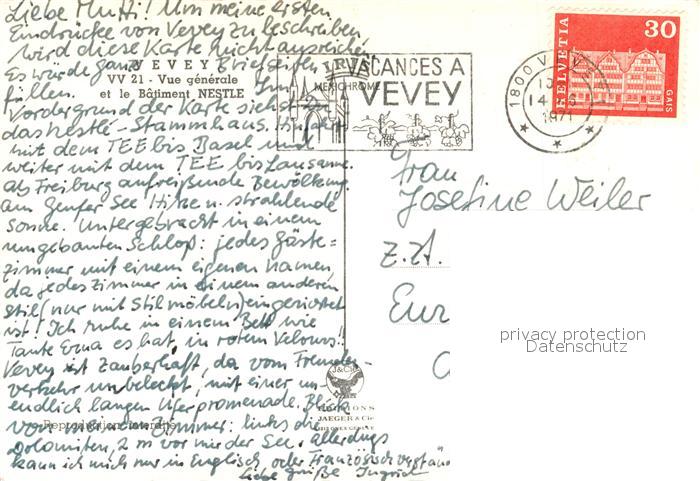 Liebe Mutti! Um meine ersten
Eindrücke von Vevey zu beschreiben,
wird diese Karte nicht ausreichen.
Es würde ganze Briefseiten
füllen. Im
Vordergrund der Karte siehst
das Nestlé-Stammhaus. Ich fuhr
mit dem TEE bis Basel und
weiter mit dem TEE bis Lausanne.
ab Freiburg aufreißende Bewölkung
am Genfer See Hitze u. strahlende
Sonne. Untergebracht in einem
umgebauten Schloß: jedes Gäste-
zimmer mit einem eigenen Namen,
da jedes Zimmer in einem anderen
Stil (nur mit Stilmöbeln) eingerichtet
ist! Ich ruhe in einem Bett wie
Tante Erna es hat, in rotem Velours!!
Vevey ist zauberhaft, da vom Fremden-
verkehr unbeleckt, mit einer un-
endlich langen Uferpromenade. Blick
von meinem Zimmer: links die
Dolomiten, 2 m vor mir der See. Allerdings
kann ich mich nur in Englisch oder Französisch verstän
Liebe Grüße Ingrid
VEVEY
VV 21 - Vue générale
et le Bâtiment NESTLE
IRIS
MEXICHROME
VACANCES A
VEVEY
1800 VEVEY
1971
HELVETIA
30
GAIS
Frau
Josefine Weiler
z.Zt.
Eur
privacy protection
Datenschutz
J&Cie
EDITIONS
JAEGER & Cie
Reproduction interdite